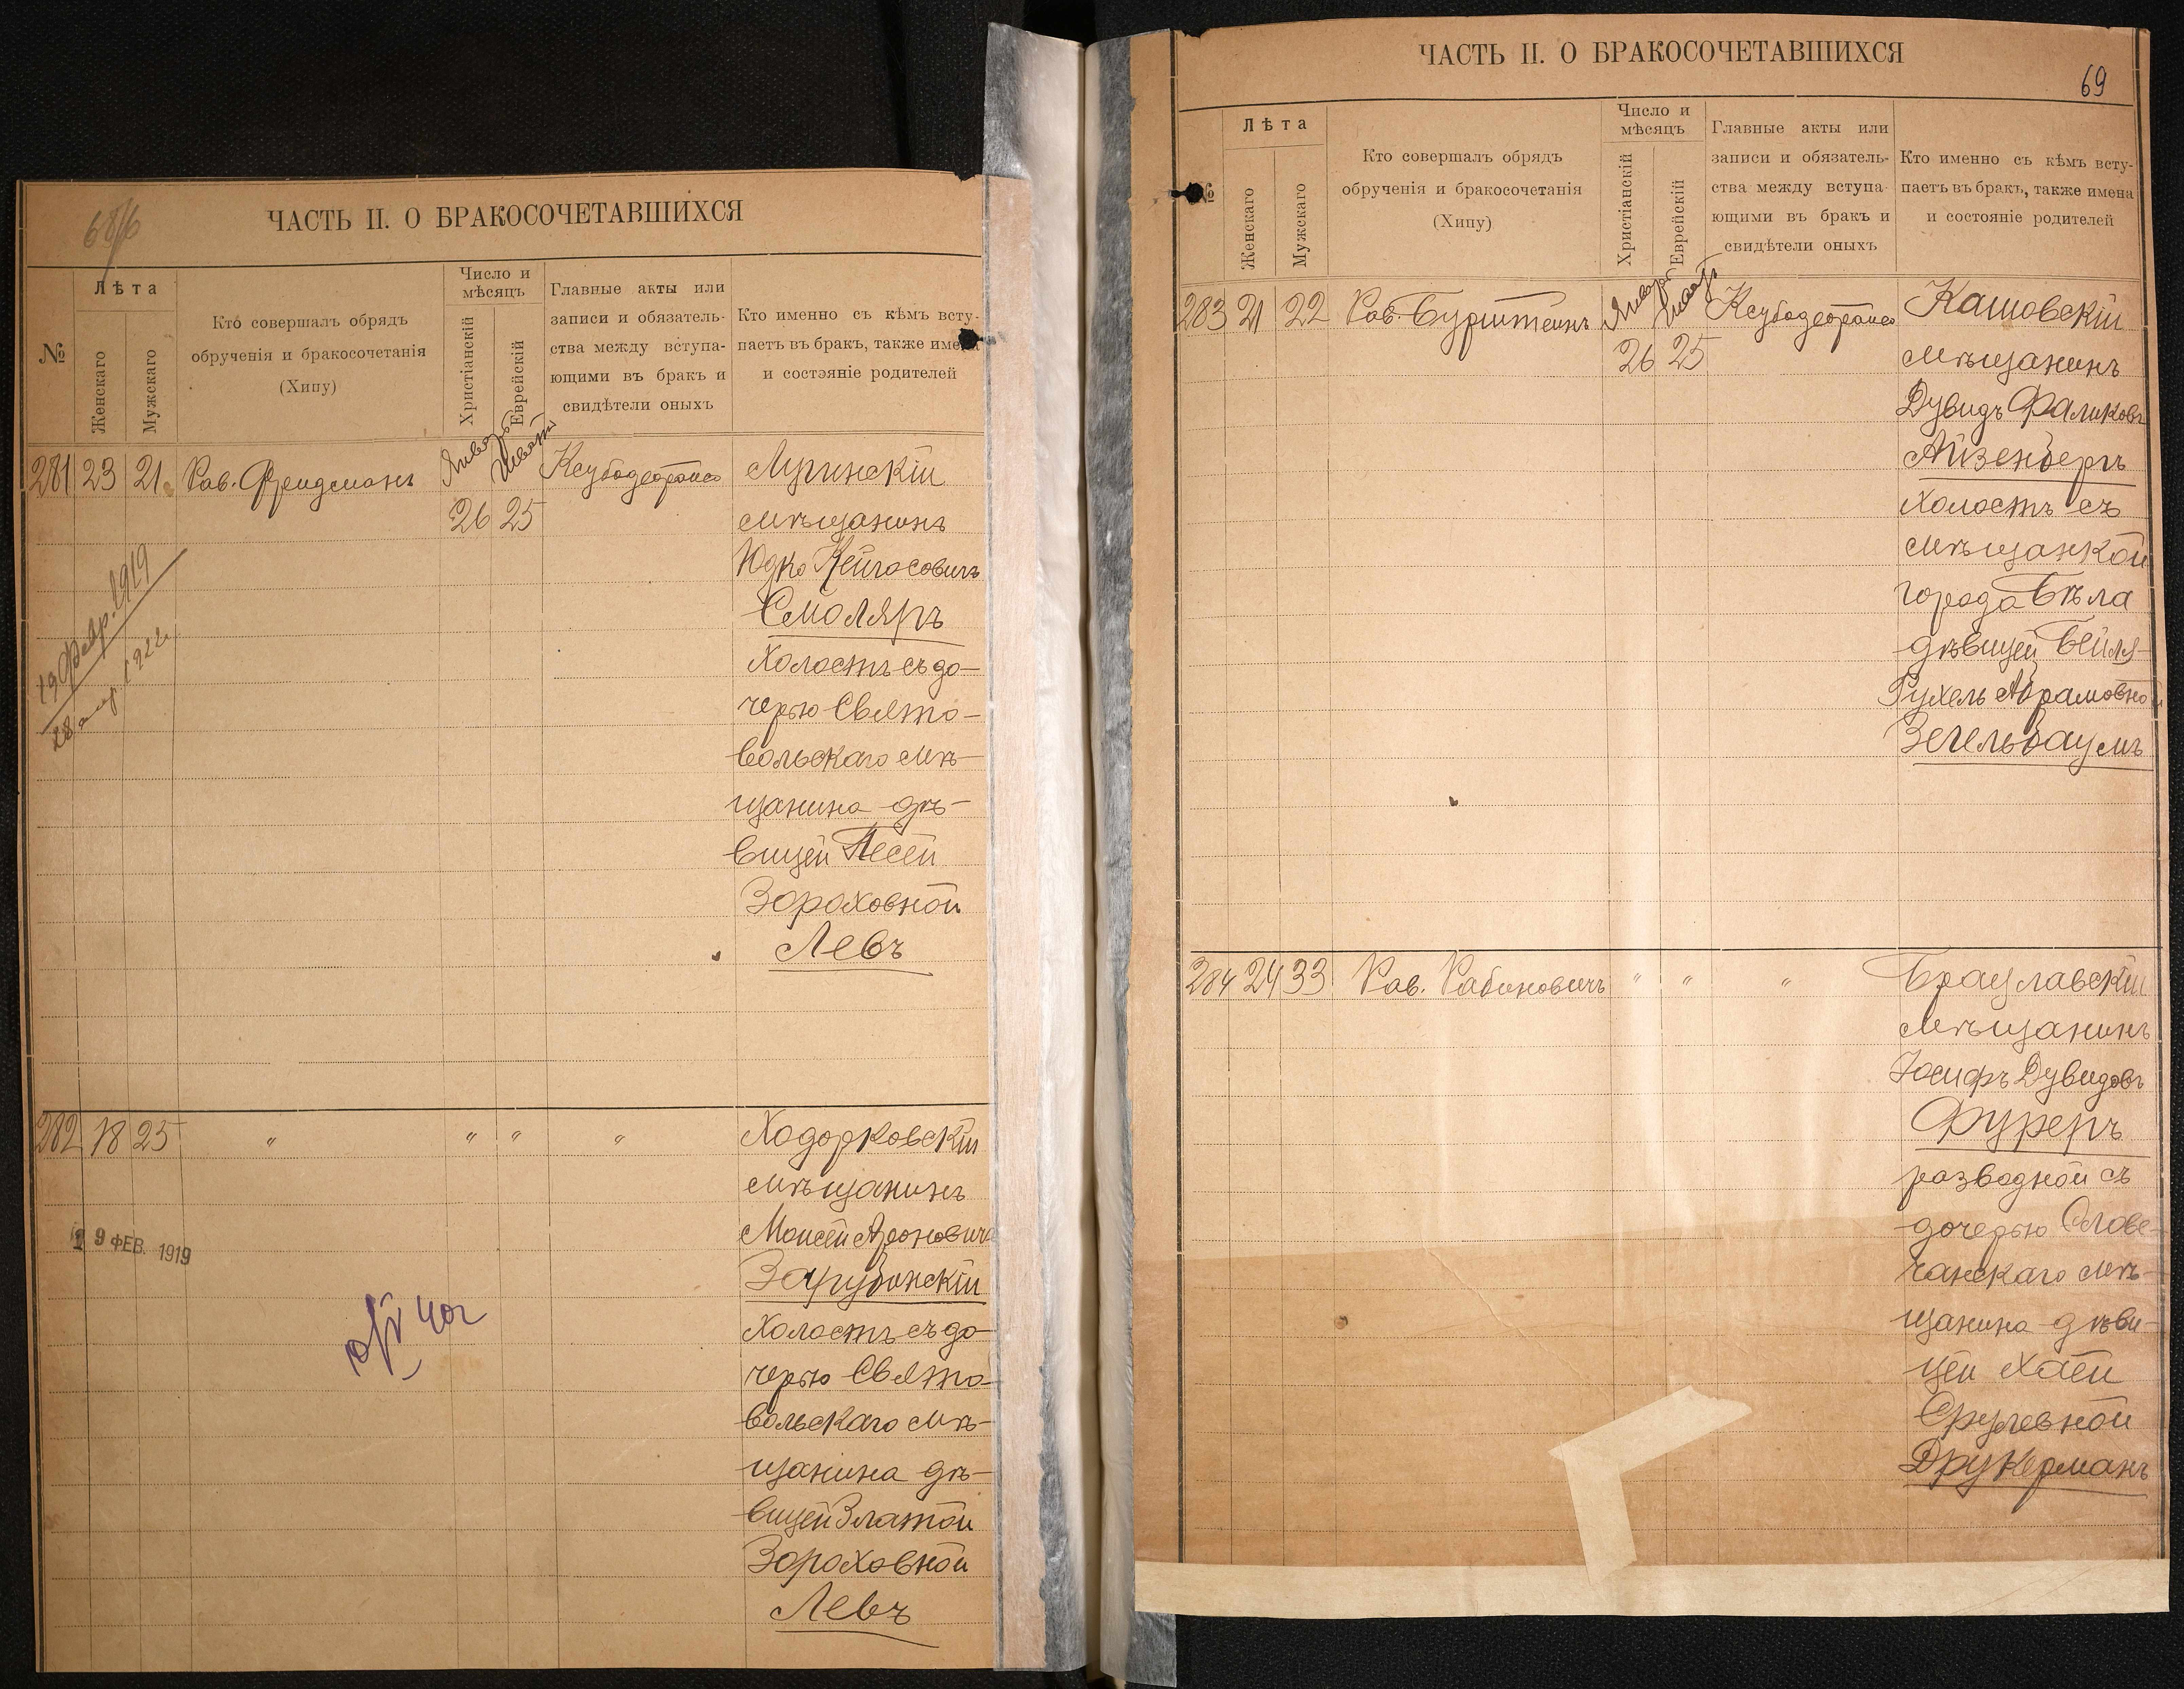 68/6
ЧАСТЬ II. О БРАКОСОЧЕТАВШИХСЯ
№
Лѣта
Женскаго
Мужскаго
Кто совершалъ обрядъ
обрученія и бракосочетанія
(Хипу)
Число и
мѣсяцъ
Христіанскій
Еврейскій
Главные акты или
записи и обязатель-
ства между вступа-
ющими въ бракъ и
свидѣтели оныхъ
Кто именно съ кѣмъ всту-
паетъ въ бракъ, также имена
и состояніе родителей
281 23 21 Рав. Фридманъ Январь Шватъ Лугинскій
26 25 мѣщанинъ
Юдко
Смоляръ
Холостъ съ до-
черью Свято-
вольскаго мѣ-
щанина дѣ-
вицей Песей
Зороховной
Левъ
19 Февр. 1919
28 1922
282 18 25 " " " " Ходорковскій
мѣщанинъ
Моисей Ароновичъ
Зарубинскій
Холостъ съ до-
черью Свято-
вольскаго мѣ-
щанина дѣ-
вицей Златой
Зороховной
Левъ
19 ФЕВ. 1919
ЧАСТЬ II. О БРАКОСОЧЕТАВШИХСЯ
69
№
Лѣта
Женскаго
Мужскаго
Кто совершалъ обрядъ
обрученія и бракосочетанія
(Хипу)
Число и
мѣсяцъ
Христіанскій
Еврейскій
Главные акты или
записи и обязатель-
ства между вступа-
ющими въ бракъ и
свидѣтели оныхъ
Кто именно съ кѣмъ всту-
паетъ въ бракъ, также имена
и состояніе родителей
283 21 22 Рав. Бурштейнъ Январь Шватъ Кашовскій
26 25 мѣщанинъ
Дувидъ Фаликовъ
Айзенбергъ
Холостъ съ
мѣщанкой
города Бѣла
дѣвицей Бейля-
Рухель Абрамовной
Зегельбаумъ
284 24 33 Рав. Рабиновичъ " " " Брацлавскій
мѣщанинъ
Іосифъ Дувидовъ
Фуреръ
разводной съ
дочерью Слове-
чанскаго мѣ-
щанина дѣви-
цей Хаей
Срулевной
Друкерманъ